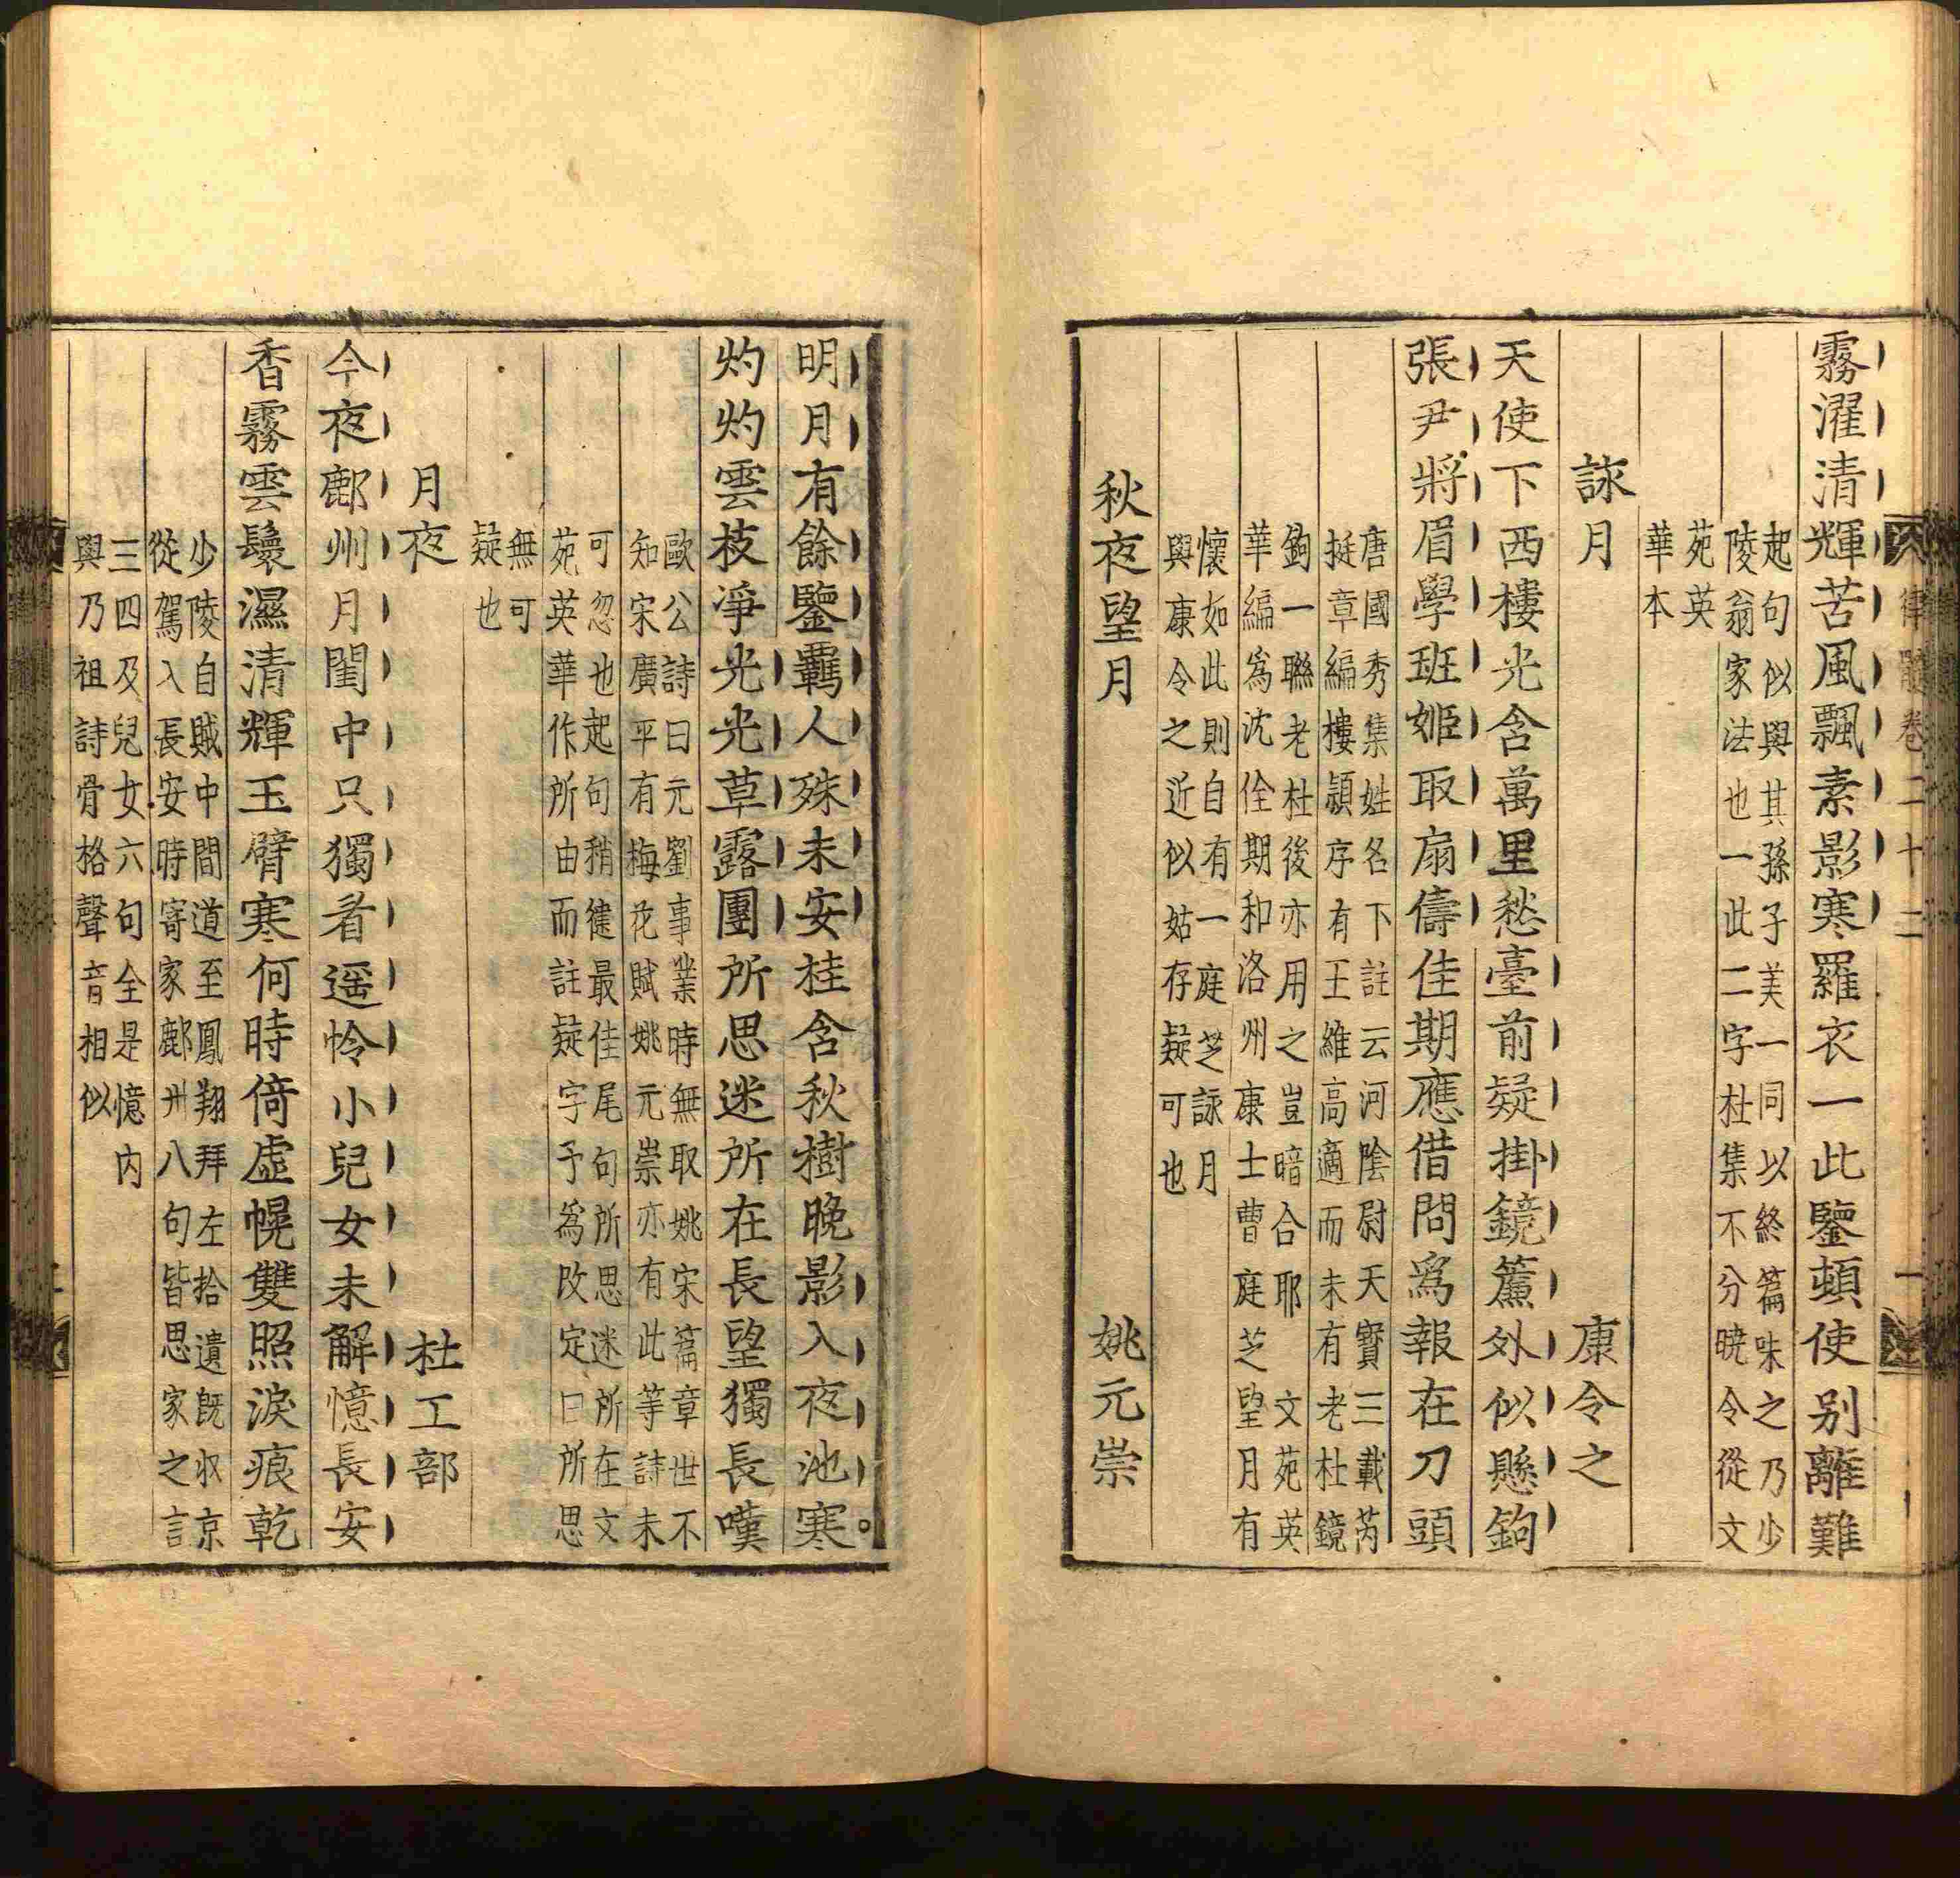 律髓卷二十二
一
霧濯清輝苦風飄素影寒羅衣一此鑒頓使别離難
起句似與其孫子美一同以終篇味之乃少
陵翁家法也一此二字杜集不分曉今從文
苑英
華本
詠月 康令之
天使下西樓光含萬里愁臺前疑掛鏡簾外似懸鉤
張尹將眉學班姬取扇儔佳期應借問爲報在刀頭
唐國秀集姓名下註云河陰尉天寶三載芮
挺章編樓頴序有王維高適而未有老杜鏡
鉤一聯老杜後亦用之豈暗合耶 文苑英
華編爲沈佺期和洛州康士曹庭芝望月有
懷如此則自有一庭芝詠月
與康令之近似姑存疑可也
秋夜望月 姚元崇
明月有餘鑒羈人殊未安桂含秋樹晚影入夜池寒
灼灼雲枝凈光光草露團所思迷所在長望獨長嘆
歐公詩曰元劉事業時無取姚宋篇章世不
知宋廣平有梅花賦姚元崇亦有此等詩未
可忽也起句稍健最佳尾句所思迷所在文
苑英華作所由而註疑字予爲改定曰所思
無可
疑也
月夜 杜工部
今夜鄜州月閨中只獨看遥怜小兒女未解憶長安
香霧雲鬟濕清輝玉臂寒何時倚虚幌雙照淚痕乾
少陵自賊中間道至鳳翔拜左拾遺既収京
從駕入長安時寄家鄜州八句皆思家之言
三四及兒女六句全是憶内
與乃祖詩骨格聲音相似